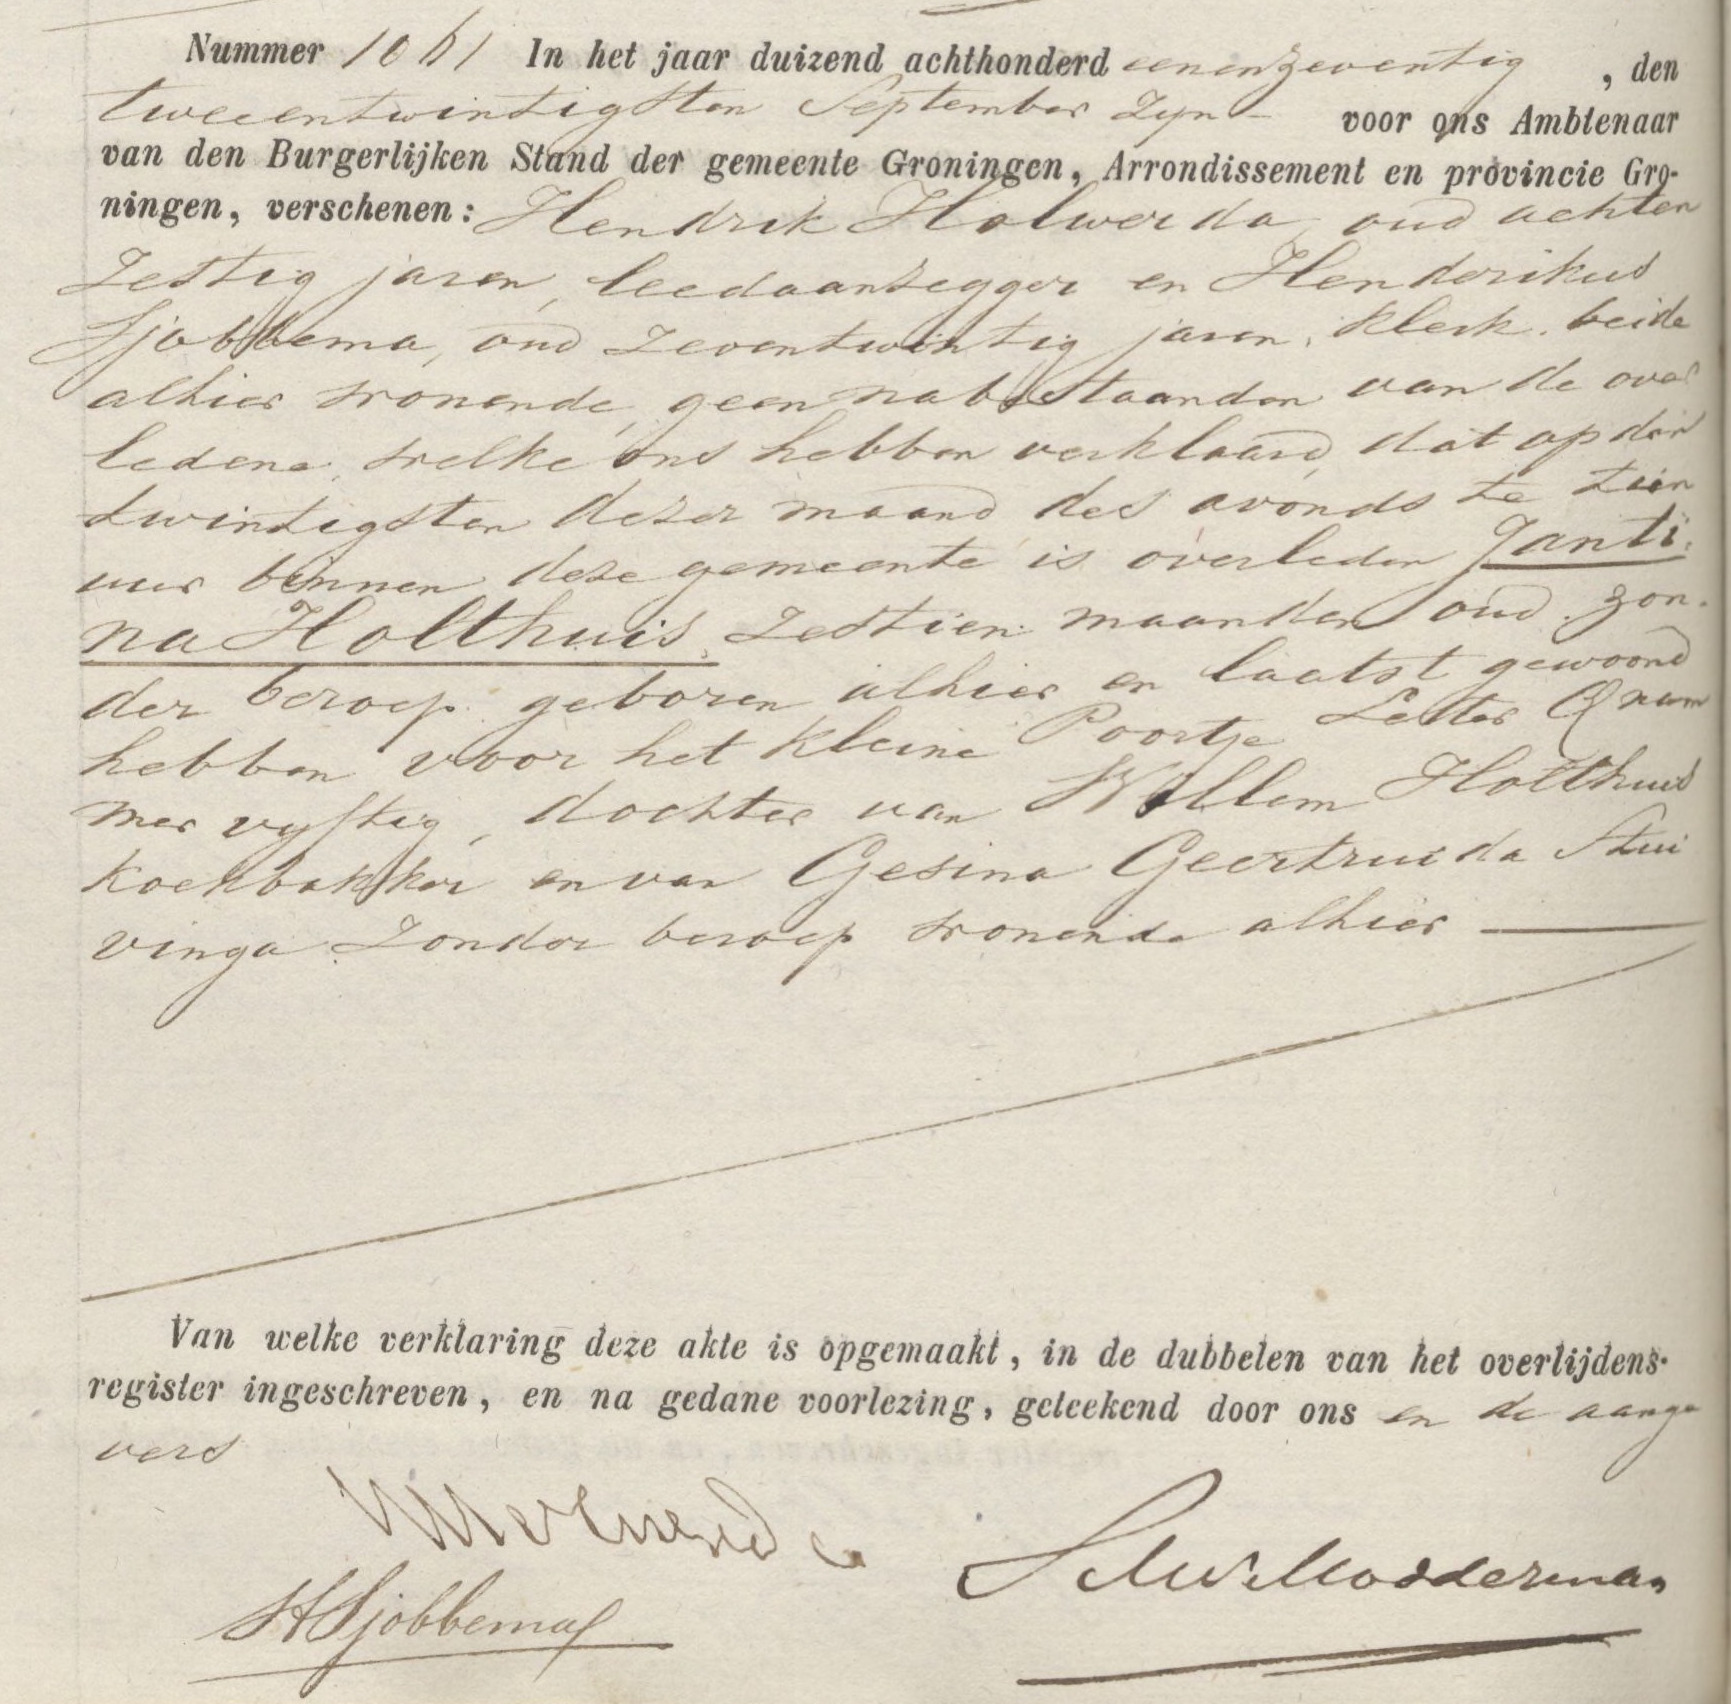 Nummer 1061 In het jaar duizend achthonderd eenenzeventig , den
tweeentwintigsten September zyn - voor ons Ambtenaar
van den Burgerlijken Stand der gemeente Groningen, Arrondissement en provincie Gro-
ningen, verschenen: Hendrik Holwerda, oud achten
zestig jaren, leedaanzegger en Henderikus
Sjobbema, oud zeventwintig jaren, klerk, beide
alhier wonende, geen nabestaanden van de over
ledene, welke ons hebben verklaard, dat op den
twintigsten dezer maand des avonds te tien
uur binnen deze gemeente is overleden Janti-
na Holthuis, zestien maanden oud, zon-
der beroep, geboren alhier en laatst gewoond
hebben voor het kleine Poortje Letter Q num
mer vyftig, dochter van Willem Holthuis
koekbakker en van Gesina Geertruida Stui
vinga zonder beroep wonende alhier
Van welke verklaring deze akte is opgemaakt, in de dubbelen van het overlijdens-
register ingeschreven, en na gedane voorlezing, geteekend door ons en de aange
vers
Holwerda
HSjobbema
Modderman